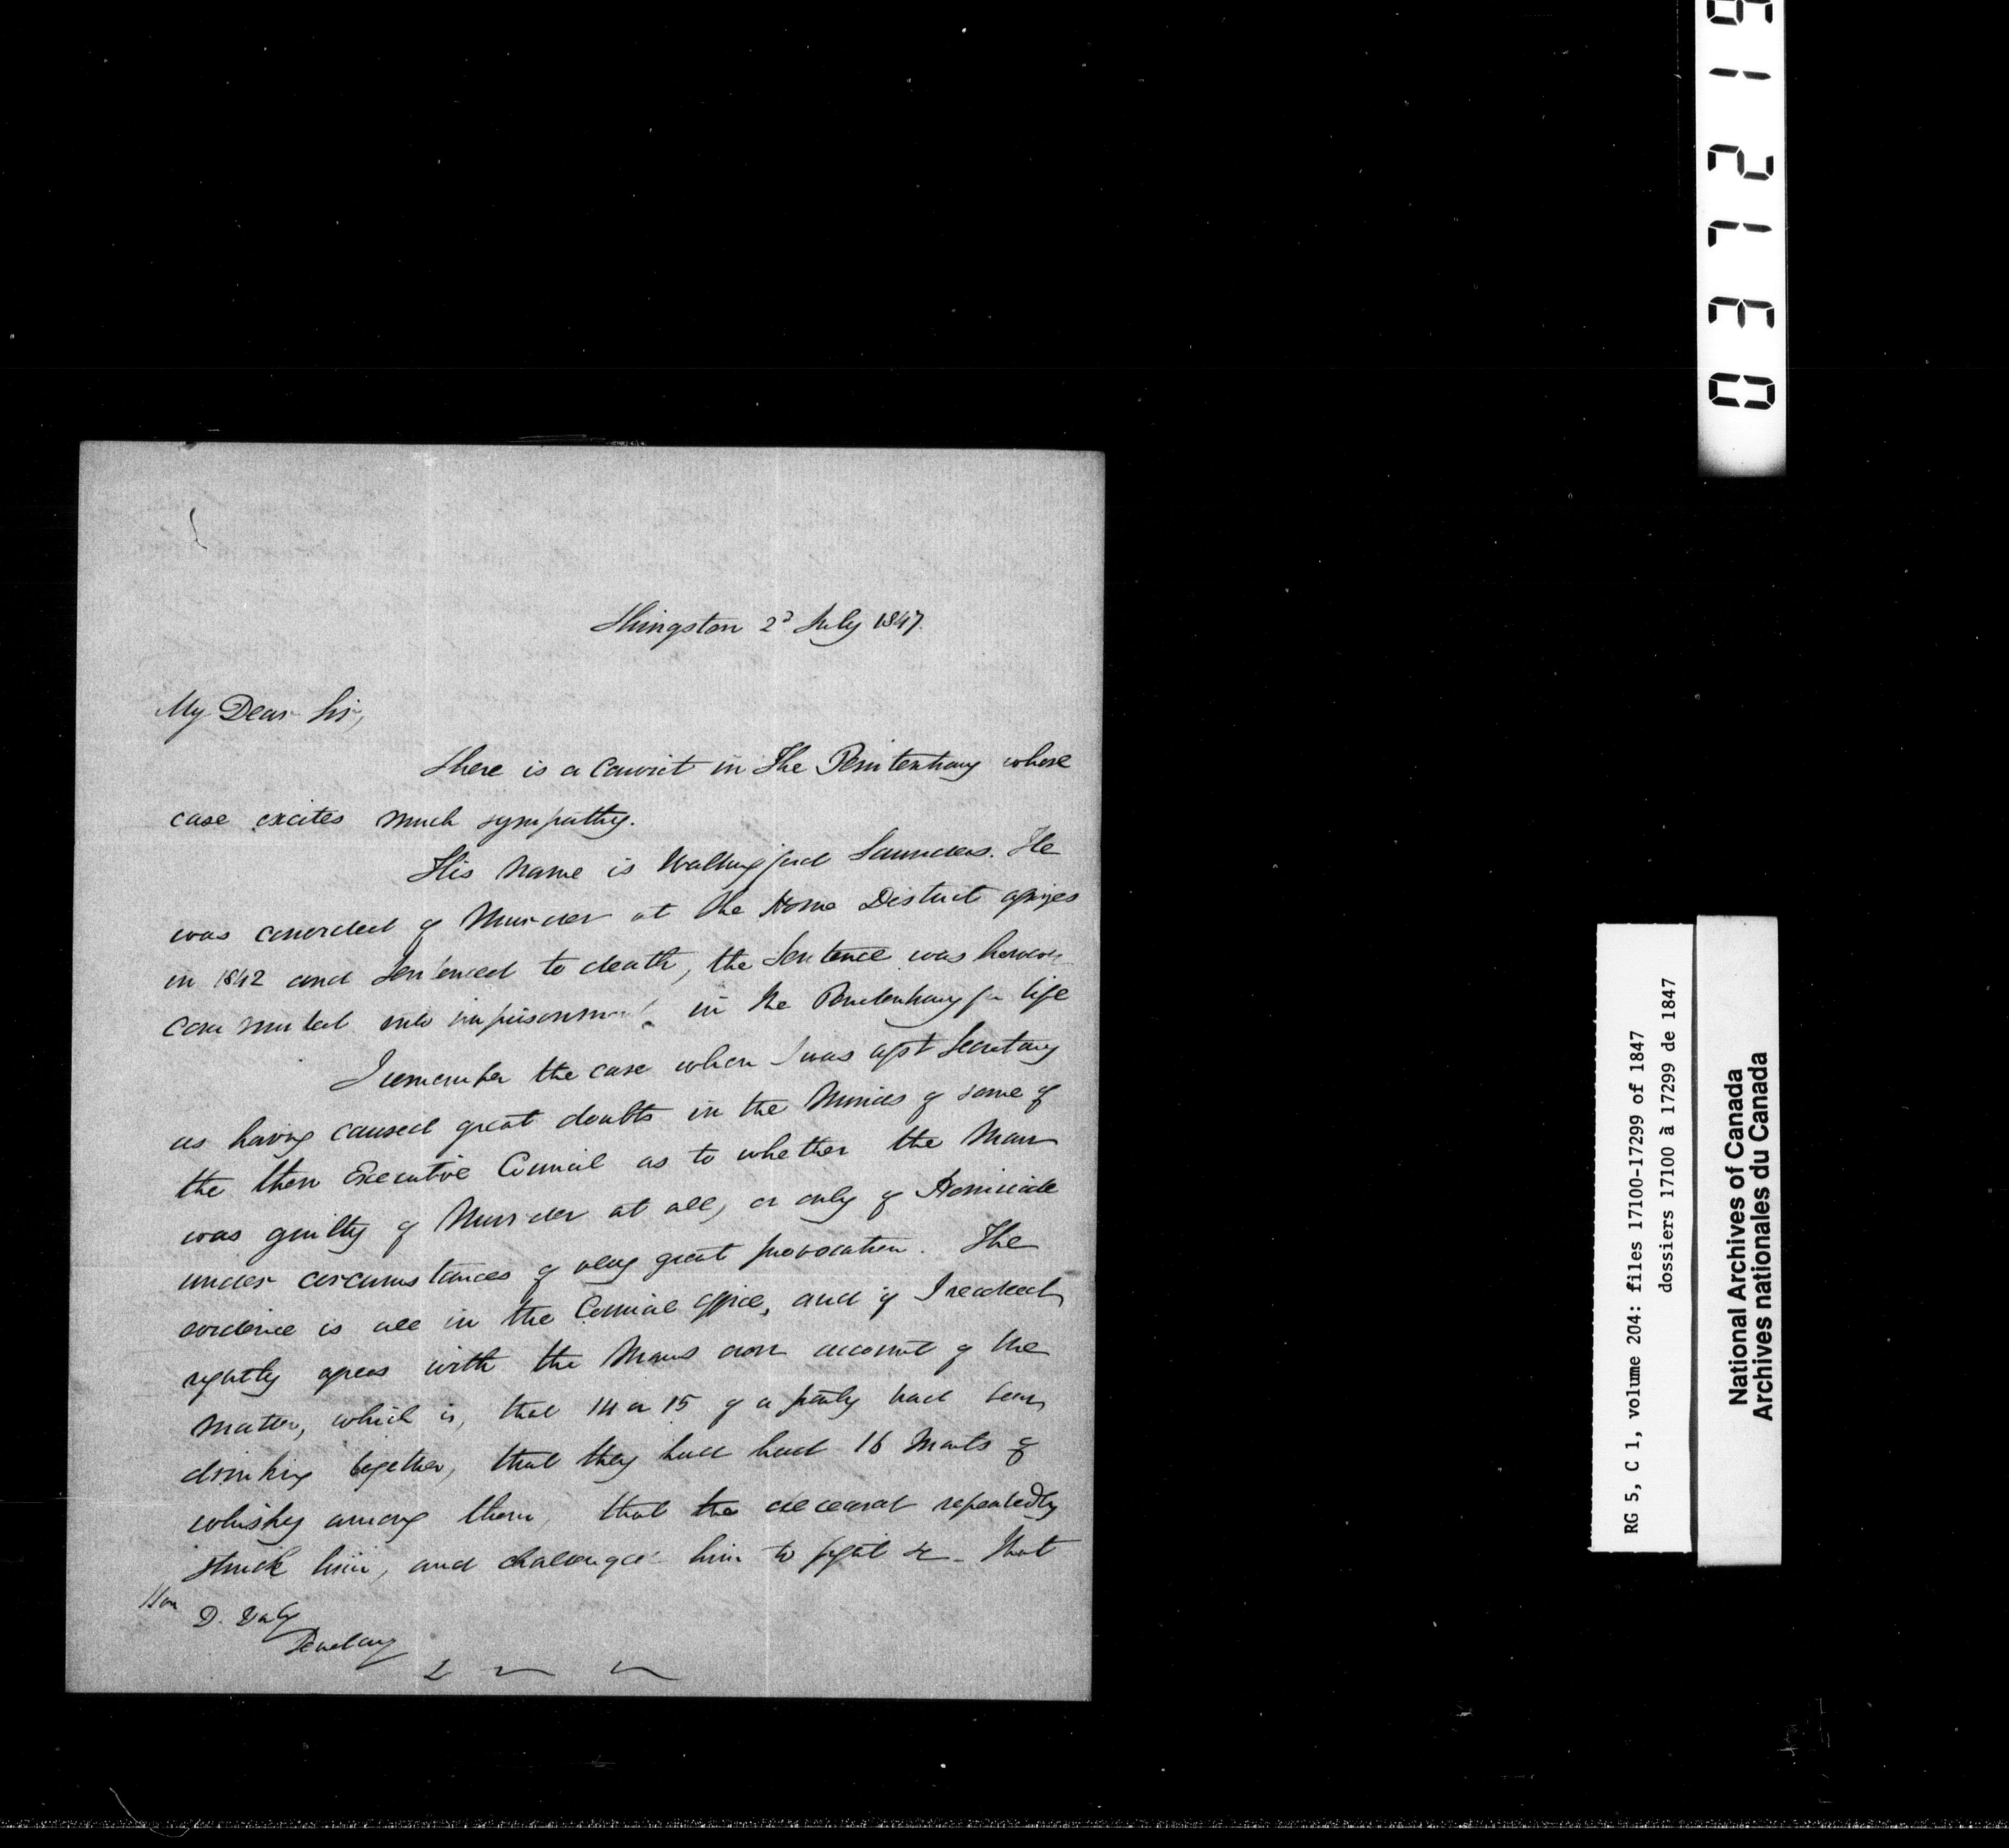 Kingston 2d July 1847.
My Dear Sir,
There is a Convict in The Penitentiary whose
case excites much sympathy.
His name is Wallingford Saunders. He
was convicted of Murder at the Home District assizes
in 1842 and sentenced to death, the Sentence was however
commuted into imprisonment in the Penitentiary for life
I remember the case when I was asst Secretary
as having caused great doubts in the Minds of some of
the then Executive Council as to whether the Man
was guilty of Murder at all, or only of Homicide
under circumstances of very great provocation. The
evidence is all in the Council office, and if I recollect
rightly agrees with the Mans own account of the
Matter, which is, that 14 or 15 of a party had been
drinking together, that they had had 16 of
whisky among them, that the deceased repeatedly
struck him, and challenged him to fight &c. That
Hon
D. Daly
Secretary
RG 5, C 1, volume 204: files 17100-17299 of 1847
dossiers 17100 à 17299 de 1847
National Archives of Canada
Archives nationales du Canada